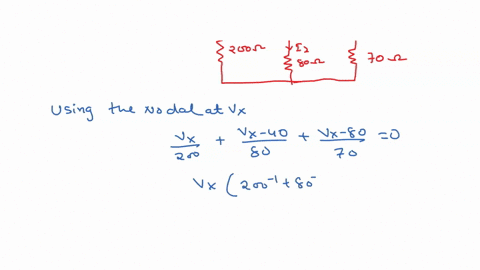 200Ω I2 80Ω 70Ω
Using the Nodal at Vx
Vx/200 + Vx-40/80 + Vx-80/70 =0
Vx (200⁻¹+80⁻